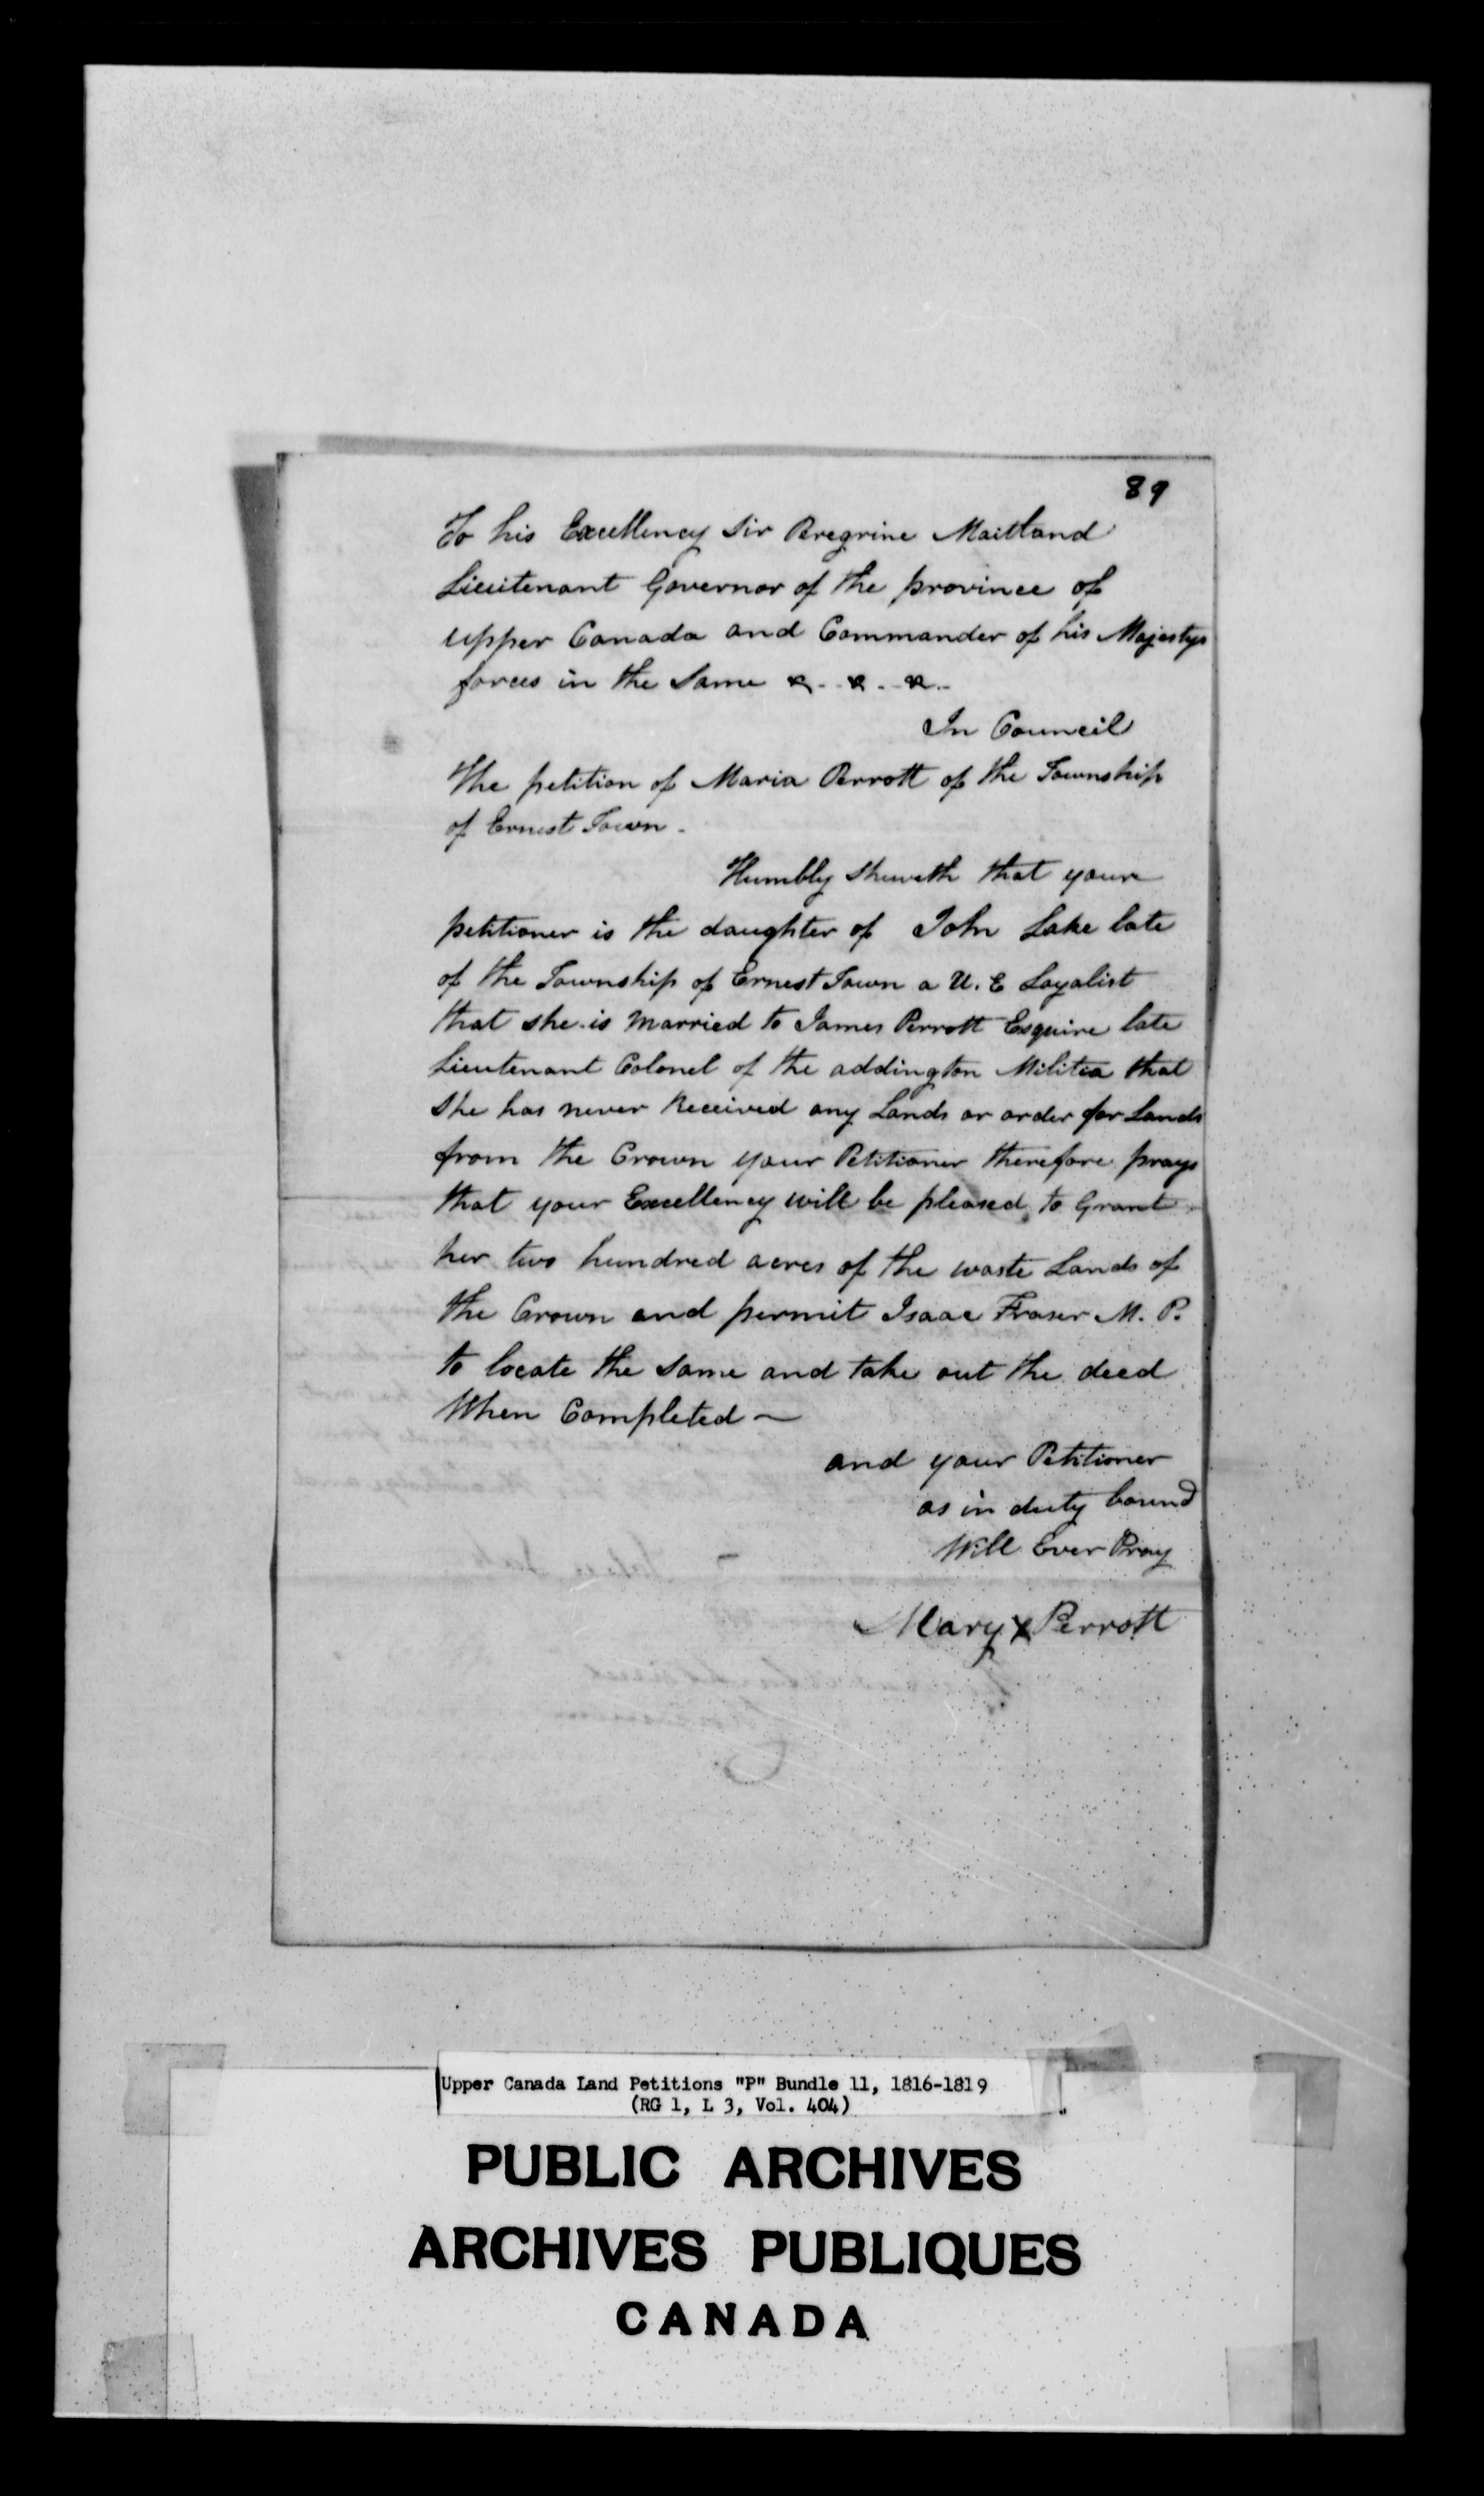 89
To his Excellency Sir Peregrine Maitland
Lieutenant Governor of the province of
upper Canada and Commander of his Majestys
forces in the Same &.. &.. &..
In Council
The petition of Maria Perrott of the Township
of Ernest Town.
Humbly Sheweth that your
petitioner is the daughter of John Lake late
of the Township of Ernest Town a U. E Loyalist
that she is Married to James Perrott Esquire late
Lieutenant Colonel of the addington Militia that
She has never Received any Lands or order for Lands
from the Crown your Petitioner therefore prays
that your Excellency will be pleased to Grant
her two hundred acres of the waste Lands of
the Crown and permit Isaac Fraser M. P.
to locate the Same and take out the deed
When Completed —
and your Petitioner
as in duty bound
Will Ever Pray
Mary x Perrott
Upper Canada Land Petitions "P" Bundle 11, 1816-1819
(RG 1, L 3, Vol. 404)
PUBLIC ARCHIVES
ARCHIVES PUBLIQUES
CANADA